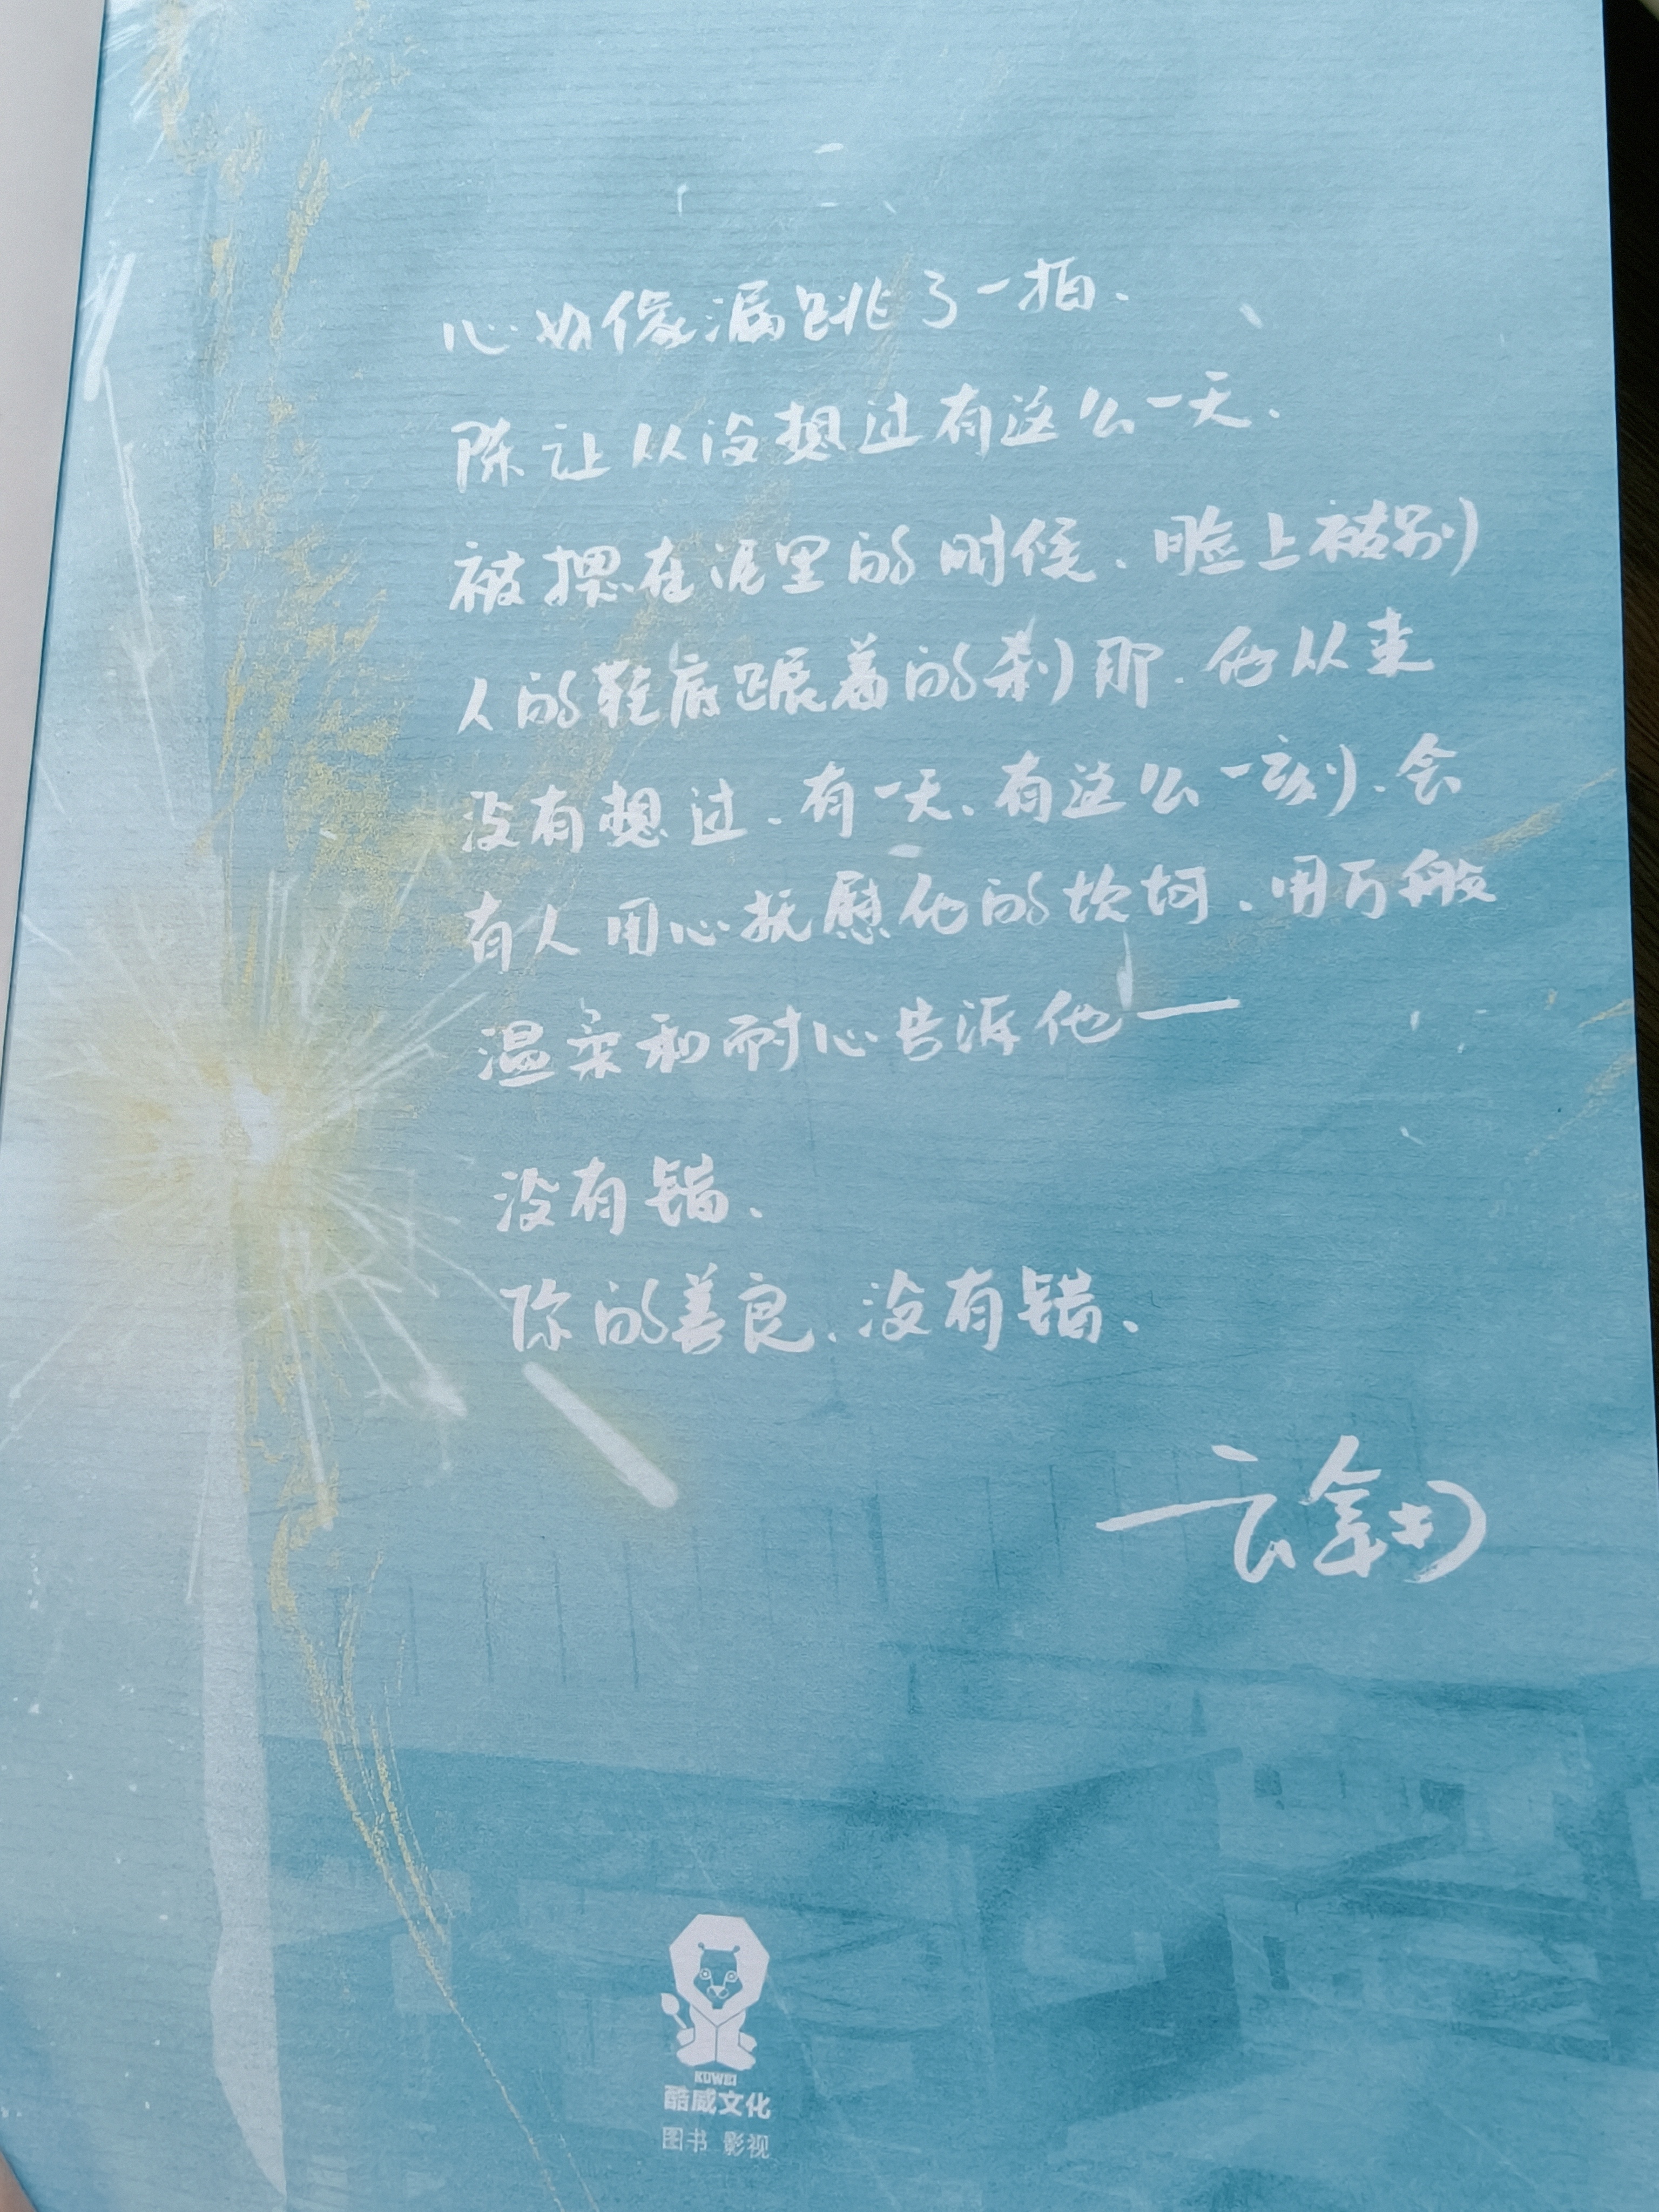 心好像漏跳了一拍.
陈让从没想过有这么一天.
被摁在泥里的时候、脸上被别
人的鞋底踩着的刹那.他从来
没有想过.有一天、有这么一刻、会
有人用心抚慰他的坎坷.用万般
温柔和耐心告诉他——
没有错、
你的善良、没有错、
云拿月
KUWEI
酷威文化
图书 影视